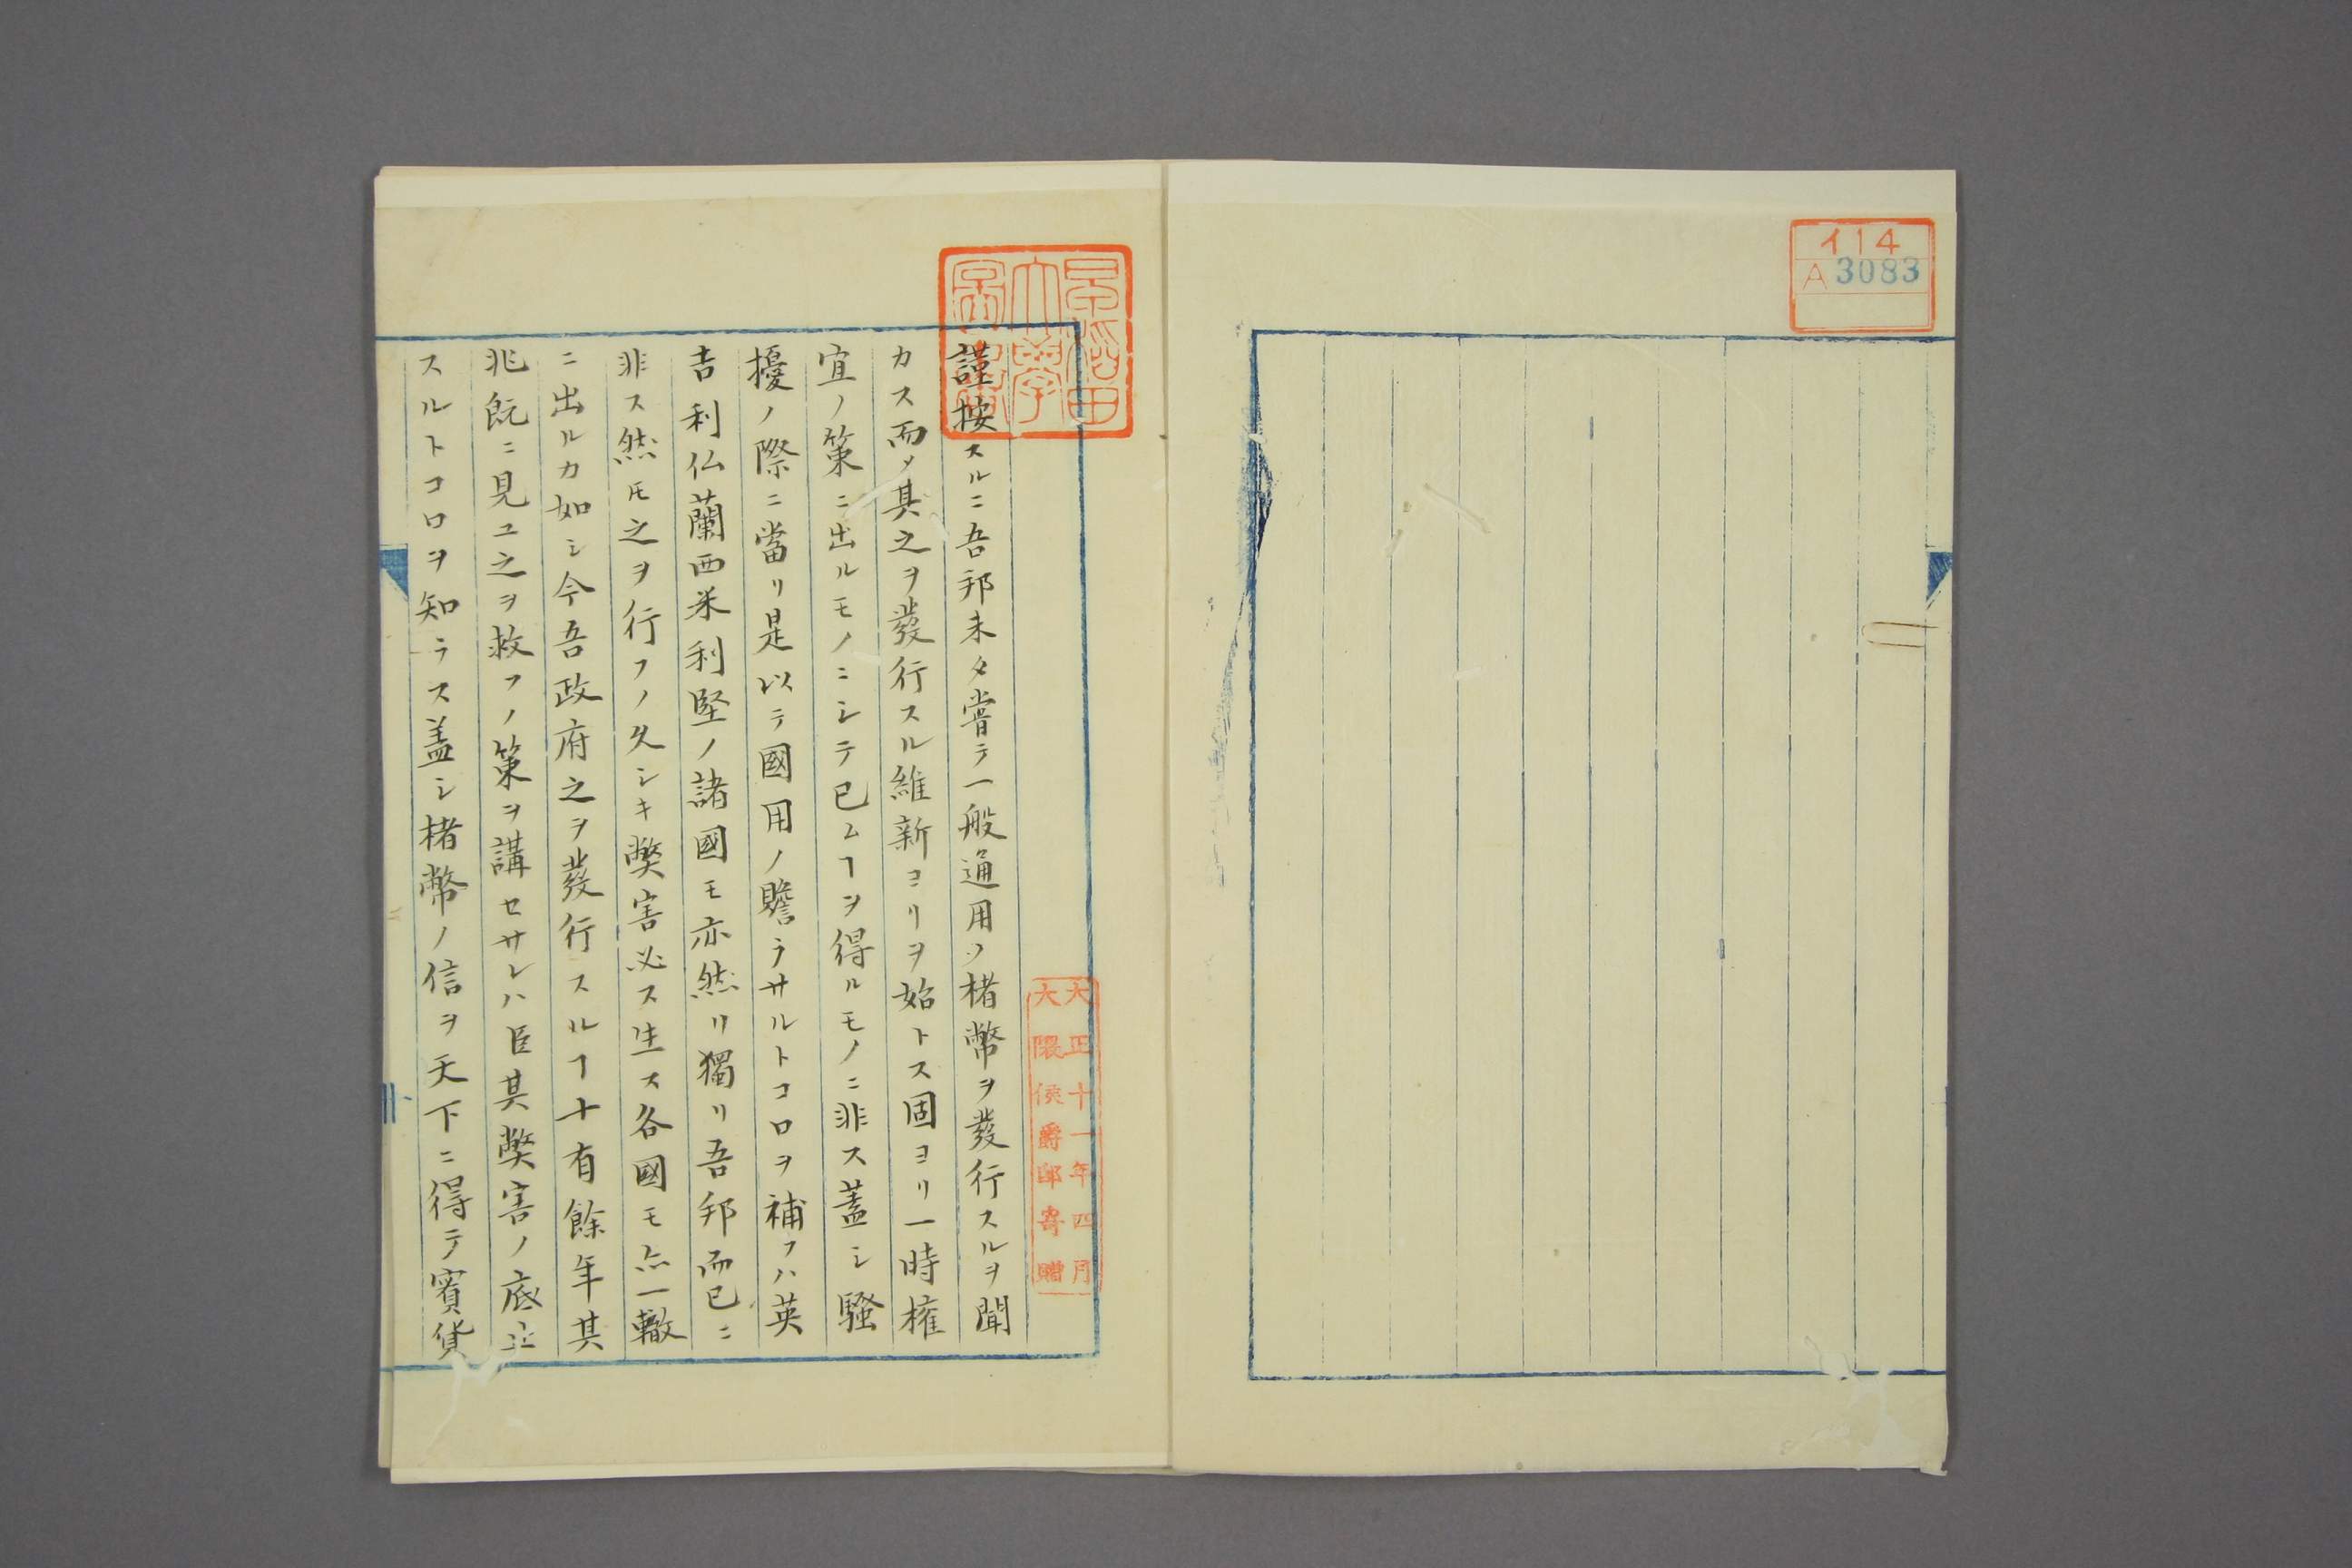 イ14
A 3083
早稲田
大學
圖書
大正十一年四月
大隈侯爵邸寄贈
謹按スルニ吾邦未タ嘗テ一般通用ノ楮幣ヲ發行スルヲ聞
カス而〆其之ヲ發行スル維新ヨリヲ始トス固ヨリ一時権
宜ノ策ニ出ルモノニシテ已ムヿヲ得ルモノニ非ス蓋シ騒
擾ノ際ニ當リ是以テ國用ノ贍ラサルトコロヲ補フハ英
吉利仏蘭西米利堅ノ諸國モ亦然リ獨リ吾邦而已ニ
非ス然𪜈之ヲ行フノ久シキ弊害必ス生ス各國モ亦一轍
ニ出ルカ如シ今吾政府之ヲ發行スルヿ十有餘年其
兆既ニ見ユ之ヲ救フノ策ヲ講セサレハ臣其弊害ノ底止
スルトコロヲ知ラス蓋シ楮幣ノ信ヲ天下ニ得テ寳貨